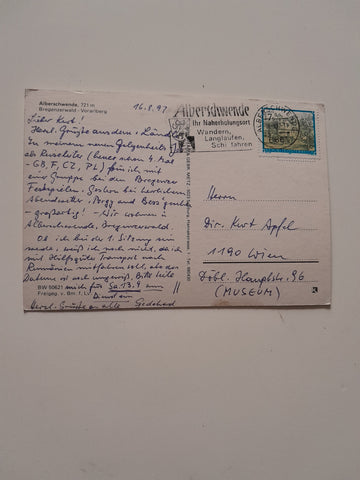 Alberschwende, 721 m
Bregenzerwald - Vorarlberg
16.8.97
Lieber Kurt!
Herzl. Grüße aus dem "Ländle"
In meinem neuen Gelegenheits
als Reiseleiter (heuer schon 4 Mal
- GB, F, CZ, PL) bin ich mit
eine Gruppe bei den Bregenzer
Festspielen. Gestern bei herrlichem
Abendwetter "Porgy and Bess" gesehen
- großartig! - Wir wohnen in
Alberschwende, Bregenzerwald.
Ob ich bei der 1. Sitzung sein
werde, weiß ich noch nicht, da ich
mit Hilfsgüter Transport nach
Rumänien mitfahren soll, aber das
Datum ist noch ungewiß. Bitte teile
mich für Sa. 13.9 zum
Dienst ein
Herzl. Grüße an alle
BW 50621
Alberschwende
Ihr Naherholungsort
Wandern,
Langlaufen,
Schi fahren
Herrn
Dir. Kurt Apfel
1190 Wien
Döbl. Hauptstr. 96
(MUSEUM)